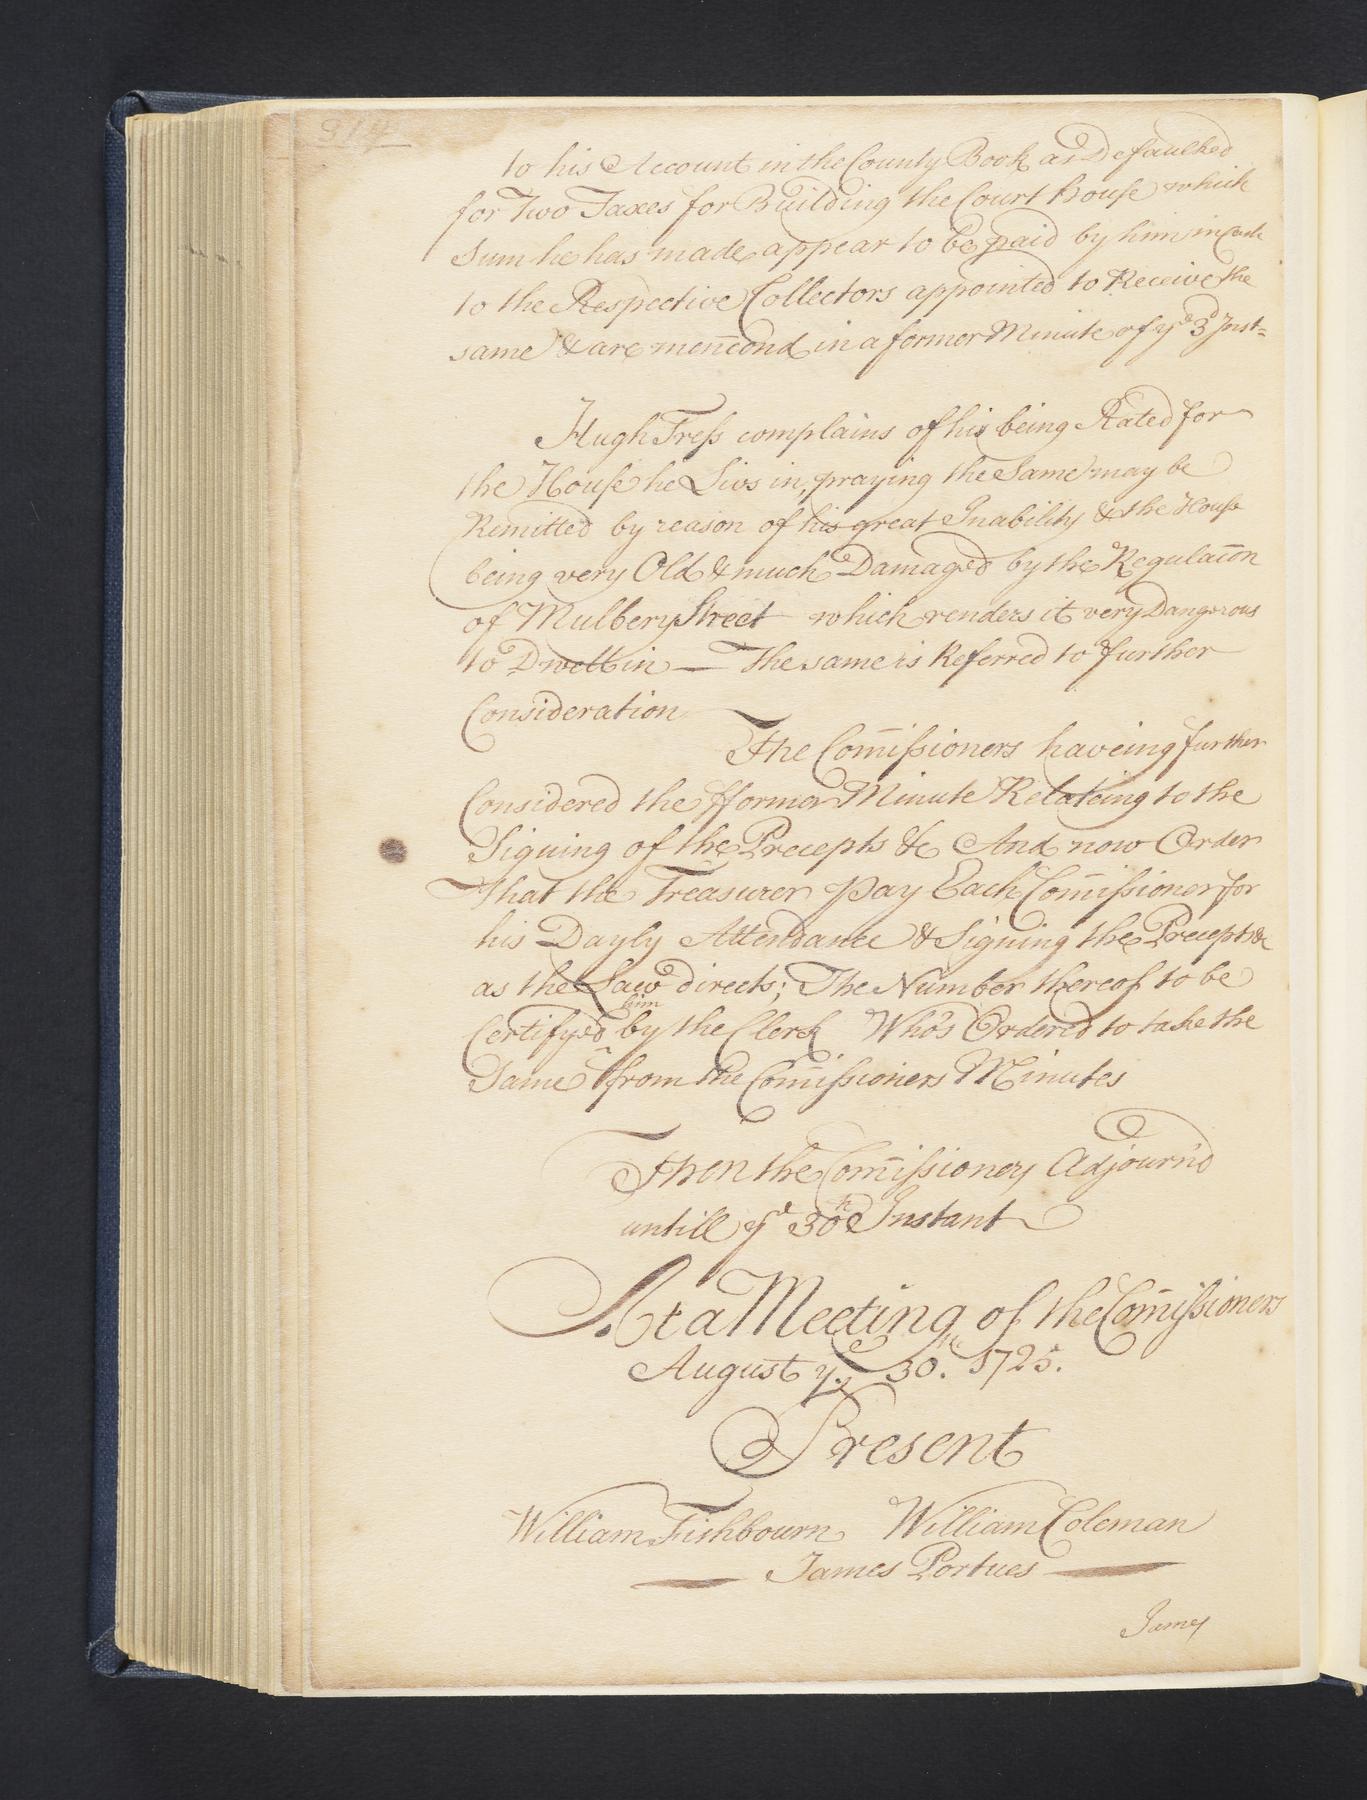 314
to his Account in the County Book as Defaulked
for Two Taxes for Building the Court house which
Sum he has made appear to be paid by him in Cash
to the Respective Collectors appointed to Receive the
same & are menc̄ond in a former Minute of yᵉ 3ᵈ Inst=
Hugh Tress complains of his being Rated for
the House he Livs in, praying the Same may be
Remitted by reason of his great Inability & the House
being very Old & much Damaged by the Regulac̄on
of Mulbery Street which renders it very Dangerous
to Dwell in — The same is Referred to further
Consideration
The Com̄issioners haveing further
Considered the fformer Minute Relateing to the
Signing of the Precepts &c And now Order
That the Treasurer Pay Each Com̄issioner for
his Dayly Attendance & Signing the Precepts &c
as the Law directs; The Number thereof to be
him
Certifyed by the Clerk Who's Ordered to take the
Same ^ from the Com̄issioners Minutes
Then the Com̄issioners Adjourn'd
untill yᵉ 30ᵗʰ Instant
At a Meeting of the Com̄issioners
August yᵉ 30.ᵗʰ 1725.
Present
William Fishbourn William Coleman
James Portues
James